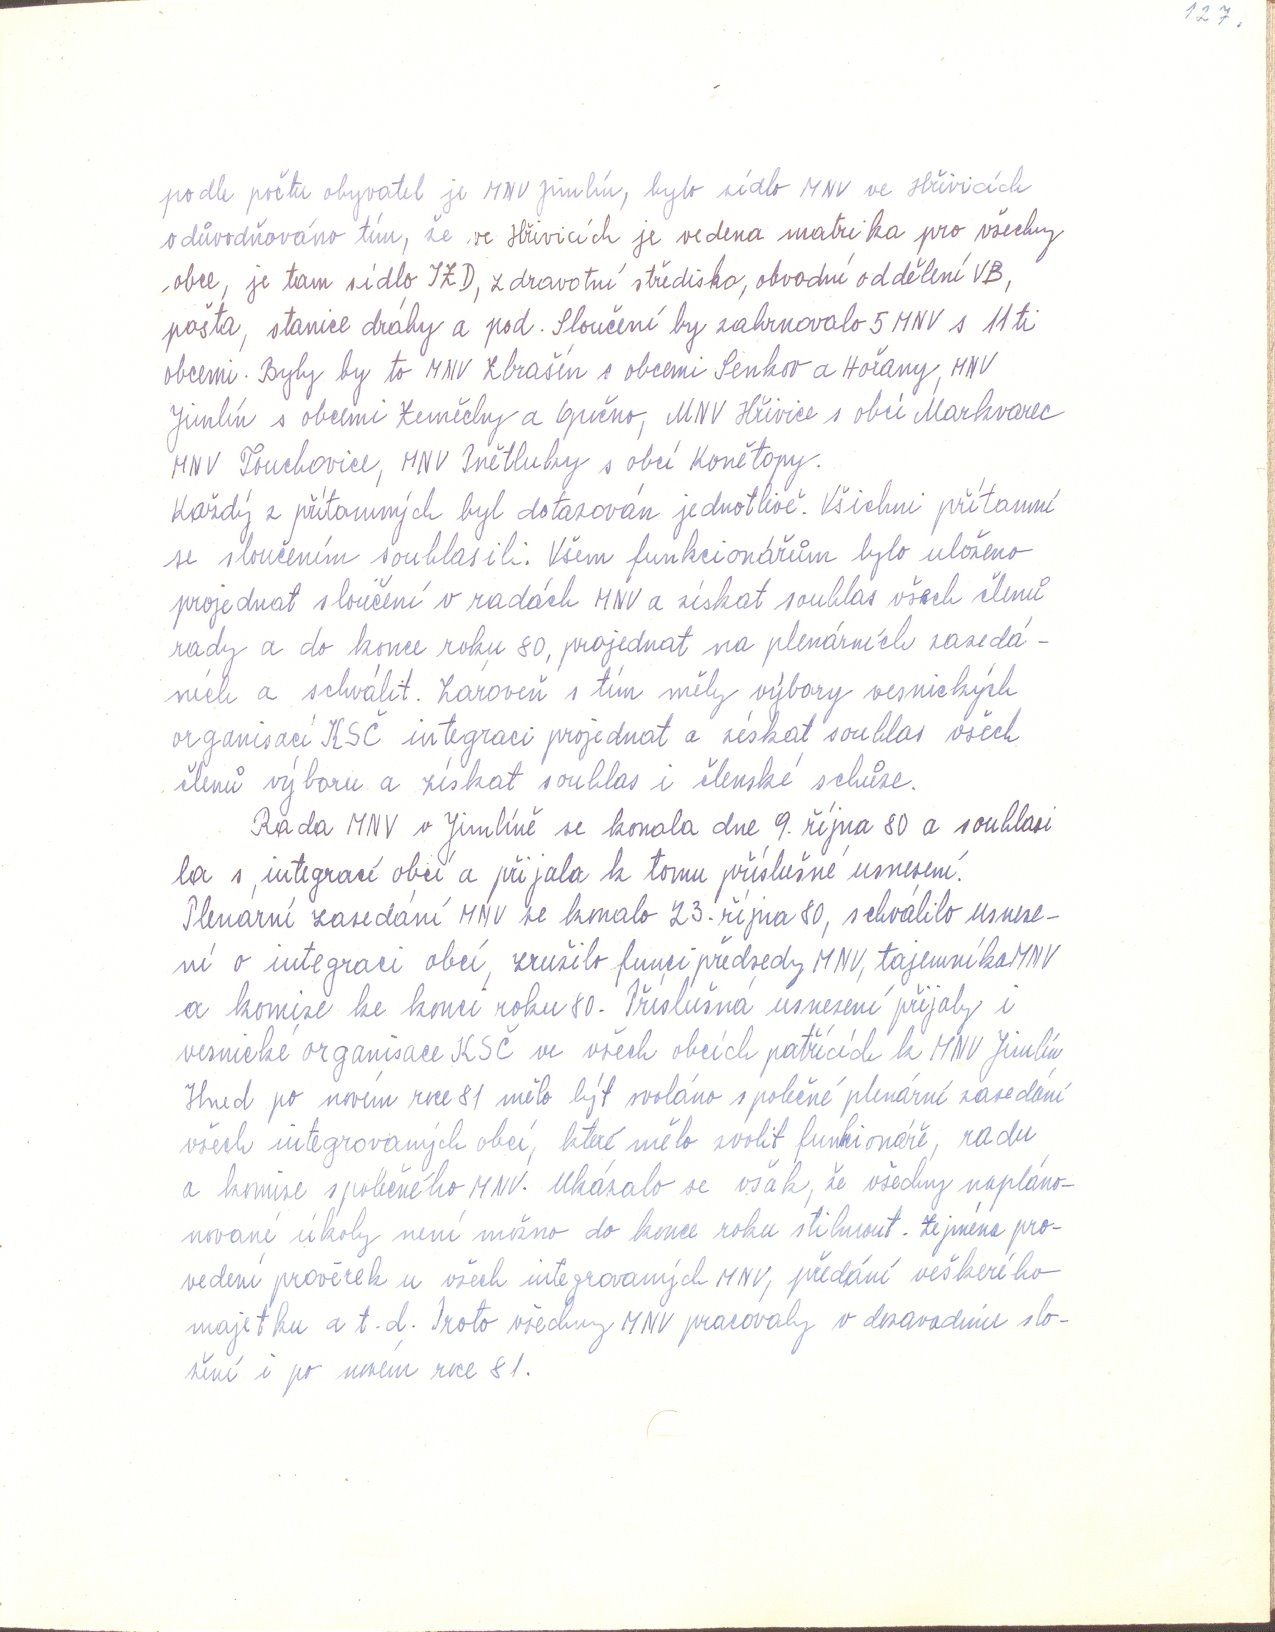 127.
podle počtu obyvatel je MNV Jimlín, bylo sídlo MNV ve Hřivicích
odůvodňováno tím, že ve Hřivicích je vedena matrika pro všechny
obce, je tam sídlo JZD, zdravotní středisko, obvodní oddělení VB,
pošta, stanice dráhy a pod. Sloučení by zahrnovalo 5 MNV s 11ti
obcemi. Byly by to MNV Zbrašín s obcemi Senkov a Hořany, MNV
Jimlín s obcemi Zeměchy a Opočno, MNV Hřivice s obcí Markvarec
MNV Touchovice, MNV Pnětluky s obcí Konětopy.
Každý z přítomných byl dotazován jednotlivě. Všichni přítomní
se sloučením souhlasili. Všem funkcionářům bylo uloženo
projednat sloučení v radách MNV a získat souhlas všech členů
rady a do konce roku 80, projednat na plenárních zasedá-
ních a schválit. Zároveň s tím měly výbory vesnických
organisací KSČ integraci projednat a získat souhlas všech
členů výboru a získat souhlas i členské schůze.
Rada MNV v Jimlíně se konala dne 9. října 80 a souhlasi
la s integrací obcí a přijala k tomu příslušné usnesení.
Plenární zasedání MNV se konalo 23. října 80, schválilo usnese-
ní o integraci obcí, zrušilo funci předsedy MNV, tajemníka MNV
a komise ke konci roku 80. Příslušná usnesení přijaly i
vesnické organisace KSČ ve všech obcích patřících k MNV Jimlín
Hned po novém roce 81 mělo být svoláno společné plenární zasedání
všech integrovaných obcí, které mělo zvolit funkcionáře, radu
a komise společného MNV. Ukázalo se však, že všechny napláno-
nované úkoly není možno do konce roku stihnout. Zejména pro-
vedení prověrek u všech integrovaných MNV, předání veškerého
majetku a t.d. Proto všechny MNV pracovaly v dosavadním slo-
žení i po novém roce 81.